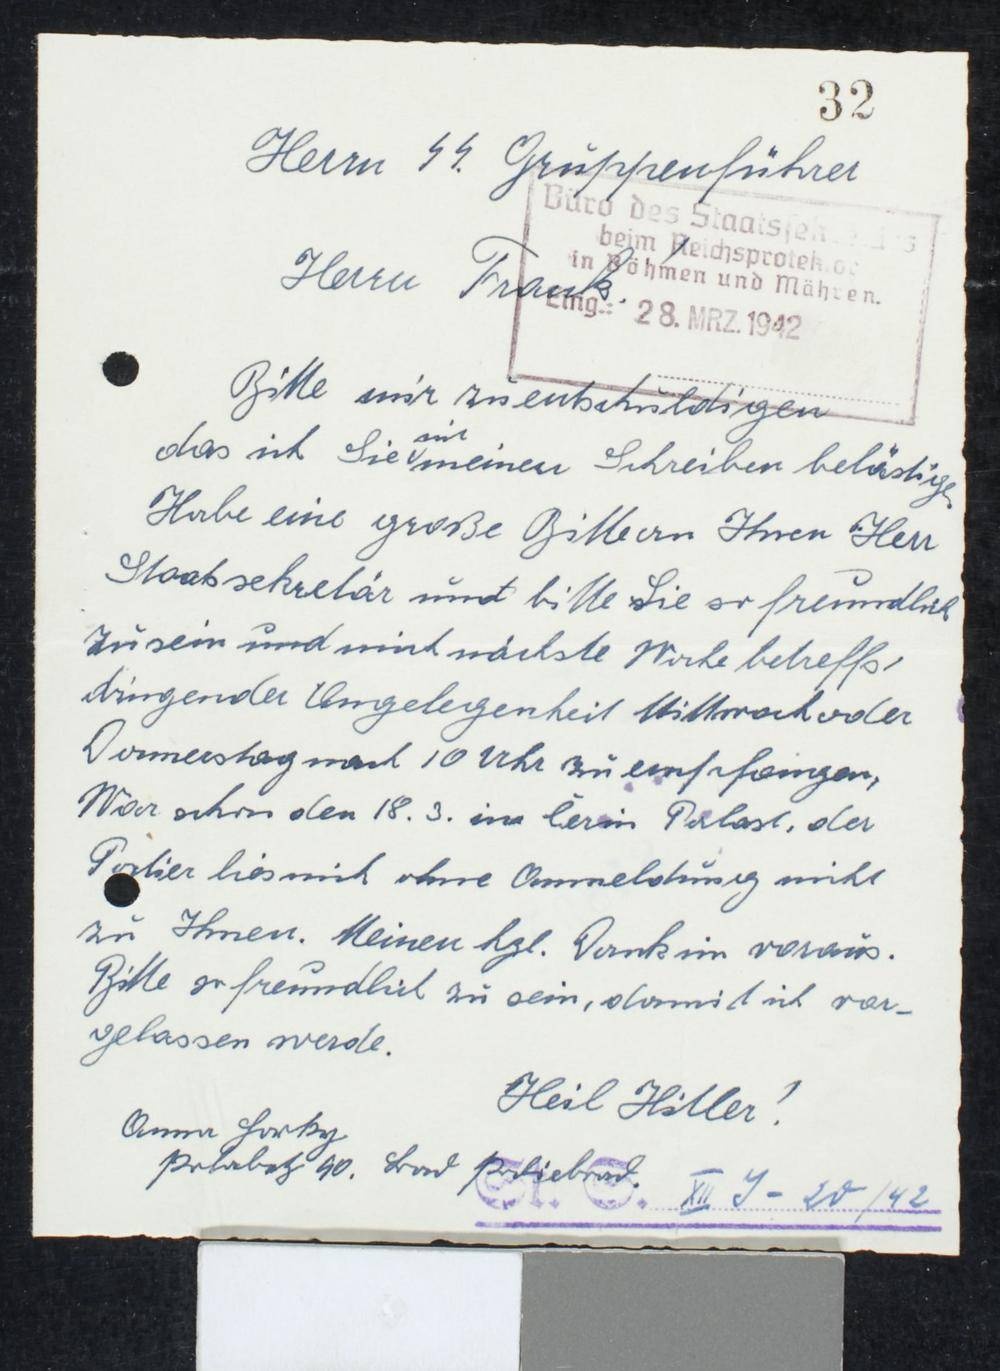 32
Herrn SS. Gruppenführer
Büro des Staatssek
beim Reichsprotektor
in Böhmen und Mähren.
Herrn Frank.
Eing.: 28. MRZ. 1942
Bitte mir zu entschuldigen
das ich Sie mit meinen Schreiben belästige
Habe eine große Bitte an Ihnen Herr
Staatssekretär und bitte Sie so freundlich
zu sein und mich nächste Woche betreffs
dringender Angelegenheit Mittwoch oder
Donnerstag nach 10 Uhr zu empfangen,
War schon den 18. 3. im Černin Palast. der
Portier lies mich ohne Anmeldung nicht
zu Ihnen. Meinen hzl. Dank im voraus.
Bitte so freundlich zu sein, damit ich vor-
gelassen werde.
Heil Hitler!
Anna Gorky
90. Bad Podiebrad.
St. S. XII J - 20/42